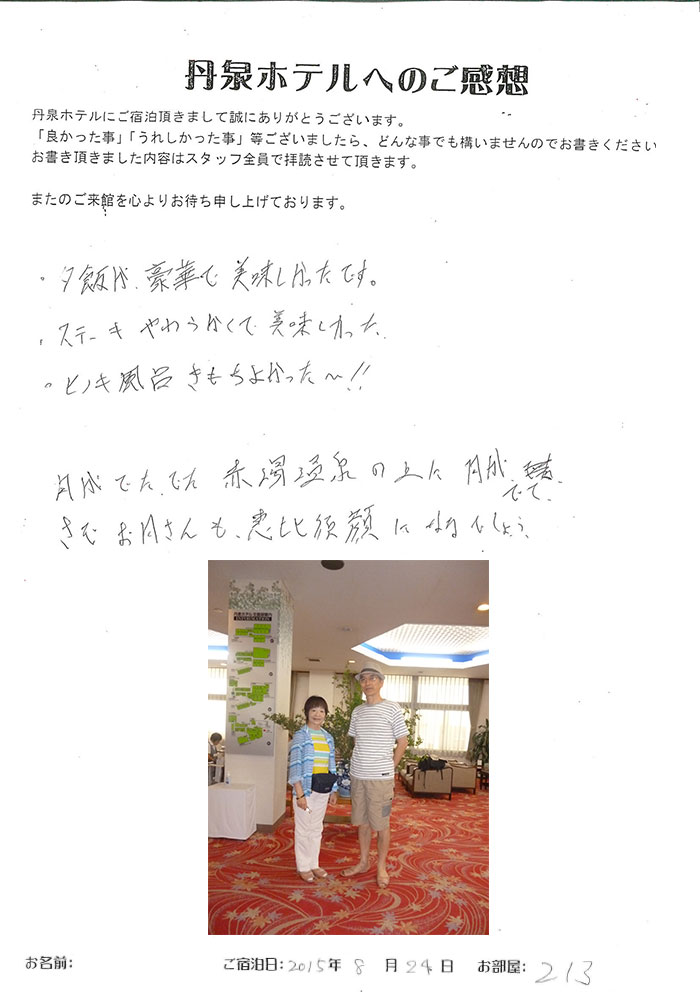 丹泉ホテルへのご感想
丹泉ホテルにご宿泊頂きまして誠にありがとうございます。
「良かった事」「うれしかった事」等ございましたら、どんな事でも構いませんのでお書きください
お書き頂きました内容はスタッフ全員で拝読させて頂きます。
またのご来館を心よりお待ち申し上げております。
・夕飯が、豪華で美味しかったです。
・ステーキ やわらかくて美味しかった
・ヒノキ風呂 きもちよかった〜!!
月が でた、でた 赤湯温泉の上に 月が
でて、
お月さんも、恵比須顔に でしょう、
丹泉ホテル全館案内
INFORMATION
お名前:
ご宿泊日:2015年 8 月 24 日 お部屋: 213